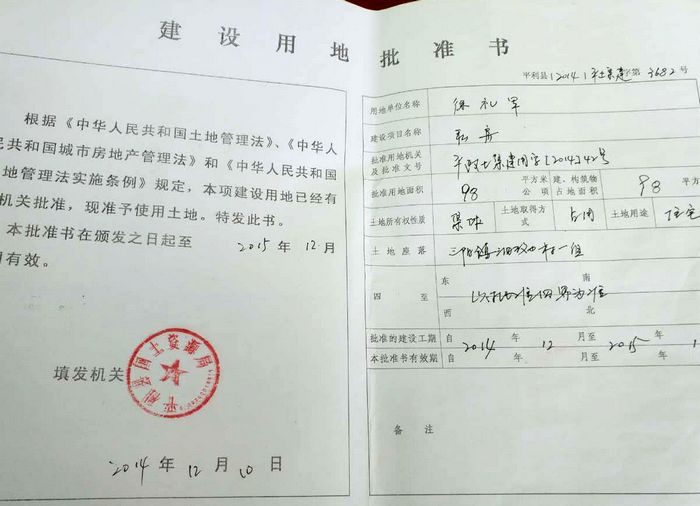 建设用地批准书
根据《中华人民共和国土地管理法》、《中华人
民共和国城市房地产管理法》和《中华人民共和国
地管理法实施条例》规定，本项建设用地已经有
机关批准，现准予使用土地。特发此书。
本批准书在颁发之日起至 2015 年 12 月
有效。
平利县国土资源局
填发机关
2014 年 12 月 10 日
平利县(2014)平土集建字第 3682 号
用地单位名称 徐礼军
建设项目名称
批准用地机关及批准文号 平政土集建用字[2014]42号
批准用地面积 98 平方米 公顷 建、构筑物占地面积 98 平方
土地所有权性质 集体 土地取得方式 占用 土地用途 住宅
土地座落 三阳镇 村一组
四至 东 南 西 北
以批准四界为准
批准的建设工期 自 2014 年 12 月至 2015 年 1
本批准书有效期 自 年 月至 年
备注